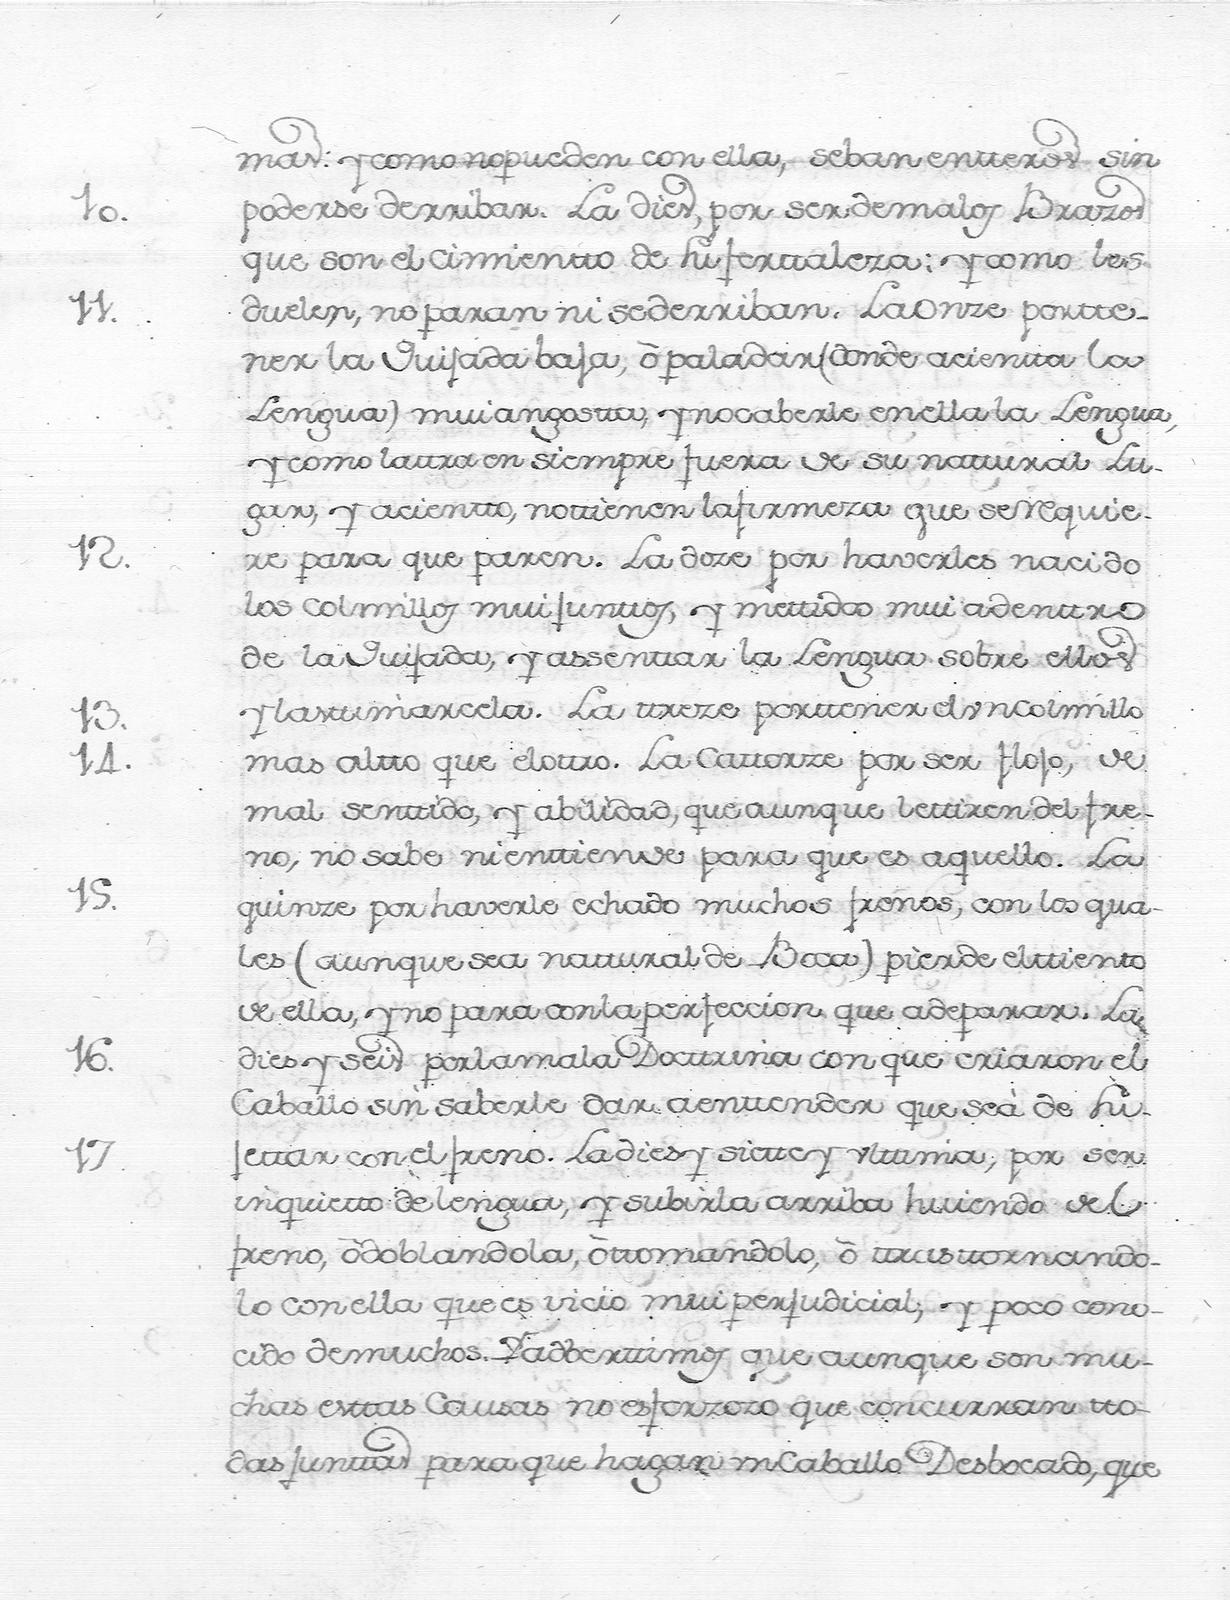 mas: y como no pueden con ella, se ban entteros sin
10. poderse derribar. La dies, por ser de malos Brazos
que son el cimientto de su fortaleza; y como les
11. duelen, no paran ni se derriban. La Onze portte-
ner la Quijada baja, ò paladar (donde acientta la
Lengua) mui angostta, y no caberle en ella la Lengua,
y como la traen siempre fuera de su nattural Lu-
gar, y acientto, no ttienen la firmeza que se requie-
12. re para que paren. La doze por haverles nacido
los Colmillos mui junttos, y mettidos mui adenttro
de la Quijada, y assenttar la Lengua sobre ellos
13. y lasttimarcela. La treze porttener el vn colmillo
14. mas altto que el otro. La Cattorze por ser flojo, de
mal senttido, y abilidad, que aunque lettiren del fre-
no, no sabe ni enttiende para que es aquello. La
15. quinze por haverle echado muchos frenos, con los qua-
les (aunque sea nattural de Boca) pierde elttiento
de ella, y no para con la perfeccion que a de parar. La
16. dies y seis por la mala Docttrina con que criaron el
Caballo sin saberle dar aenttender que seà de su-
17 jettar con el freno. La dies y siette y vlttima, por ser
inquietto de lengua, y subirla arriba huiendo del
freno, ò doblandola, òttomandolo, ò ttrasttornando-
lo con ella que es vicio mui perjudicial, y poco cono-
cido de muchos. Y adberttimos que aunque son mu-
chas esttas Causas no es forzozo que concurran tto-
das junttas para que hagan vn Caballo Desbocado, que